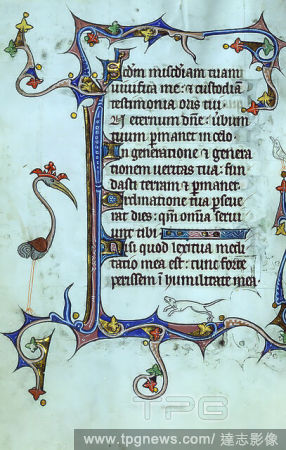 Scdm misc̄diam tuam
uiuifica me : et custodiā
testimonia oris tui.
In eternum dn̄e : ūbum
tuum ꝑmanet in celo.
In generatione et genera
tionem ueritas tua : fun
dasti terram et ꝑmanet.
Ordinatione tua ꝑseue
rat dies : qm̄ omīa serui
unt tibi.
Nisi quod lex tua medi
tatio mea est : tunc forte
perissem ī humilitate mea.
TPG
www.tpgnews.com/ 達志影像